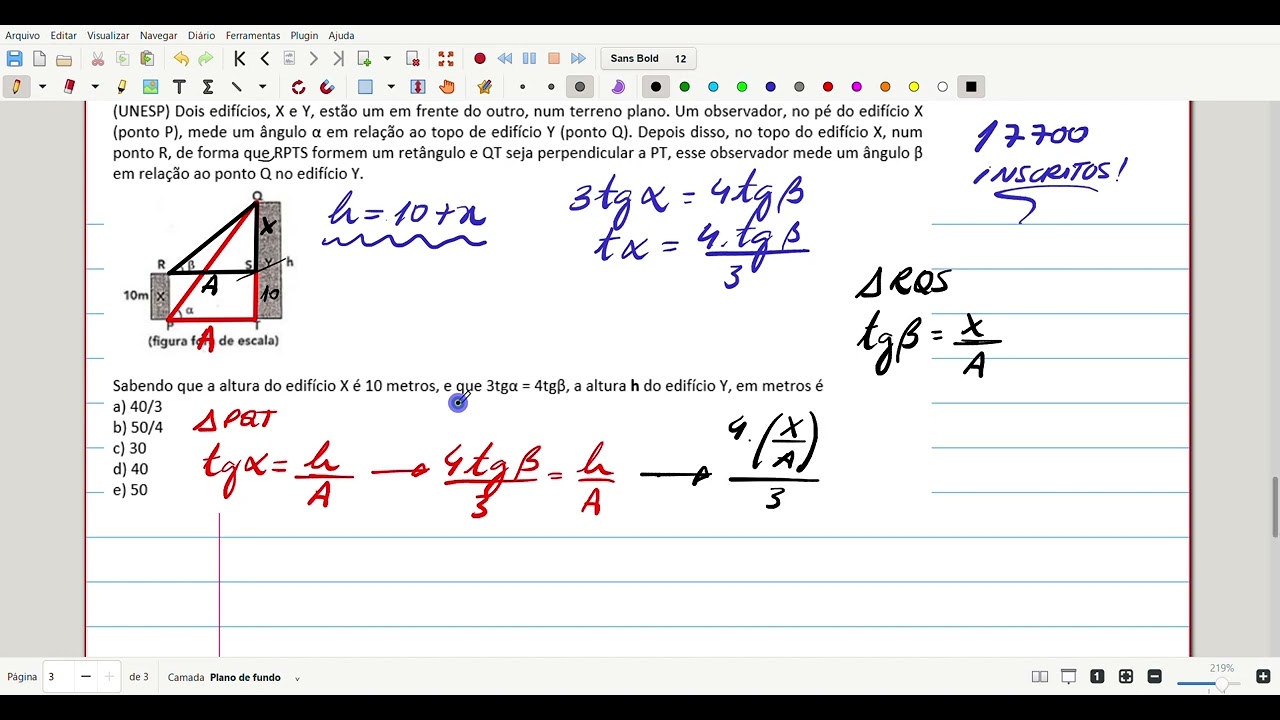 Arquivo Editar Visualizar Navegar Diário Ferramentas Plugin Ajuda
Sans Bold 12
(UNESP) Dois edifícios, X e Y, estão um em frente do outro, num terreno plano. Um observador, no pé do edifício X
(ponto P), mede um ângulo α em relação ao topo de edifício Y (ponto Q). Depois disso, no topo do edifício X, num
ponto R, de forma que RPTS formem um retângulo e QT seja perpendicular a PT, esse observador mede um ângulo β
em relação ao ponto Q no edifício Y.
17700
INSCRITOS!
h = 10 + x
3tgα = 4tgβ
tα = 4.tgβ
3
Q
X
R β S Y h
A
10m X 10
α
P T
A
(figura fora de escala)
Δ RQS
tgβ = X
A
Sabendo que a altura do edifício X é 10 metros, e que 3tgα = 4tgβ, a altura h do edifício Y, em metros é
a) 40/3
b) 50/4
c) 30
d) 40
e) 50
Δ PQT
tgα = h/A → 4tgβ/3 = h/A → 4.(X/A)/3
Página 3 de 3 Camada Plano de fundo
1
219%